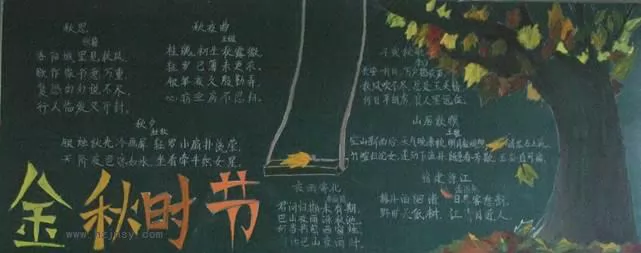 秋思
张籍
洛阳城里见秋风
欲作家书意万重
复恐匆匆说不尽
行人临发又开封
秋夜曲
王维
桂魄初生秋露微
轻罗已薄未更衣
银筝夜久殷勤弄
心怯空房不忍归
秋夕
杜牧
银烛秋光冷画屏 轻罗小扇扑流萤
天阶夜色凉如水 坐看牵牛织女星
金秋时节
夜雨寄北
君问归期未有期
巴山夜雨涨秋池
何当共剪西窗烛
却话巴山夜雨时
子夜秋歌
长安一片月 万户捣衣声
秋风吹不尽 总是玉关情
何日平胡虏 良人罢远征
山居秋暝
王维
空山新雨后 天气晚来秋 明月松间照
竹喧归浣女 莲动下渔舟 随意春芳歇 王孙自可留
宿建德江
孟浩然
移舟泊烟渚 日暮客愁新
野旷天低树 江清月近人